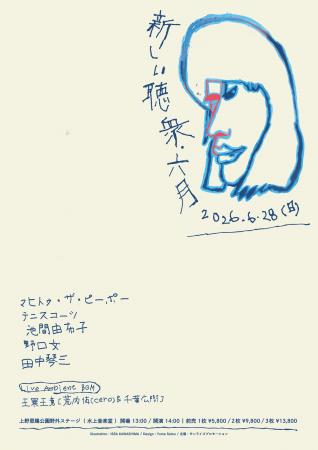 新しい聴衆・六月
2026.6.28(日)
マヒトゥ・ザ・ピーポー
テニスコーツ
池間由布子
野口文
田中琴三
Live Ambient BGM
王冥王意【荒内佑(cero)&千葉広樹】
上野恩賜公園野外ステージ(水上音楽堂)| 開場 13:00 / 開演 14:00 | 前売 1枚 ¥5,800 / 2枚 ¥9,800 / 3枚 ¥13,800